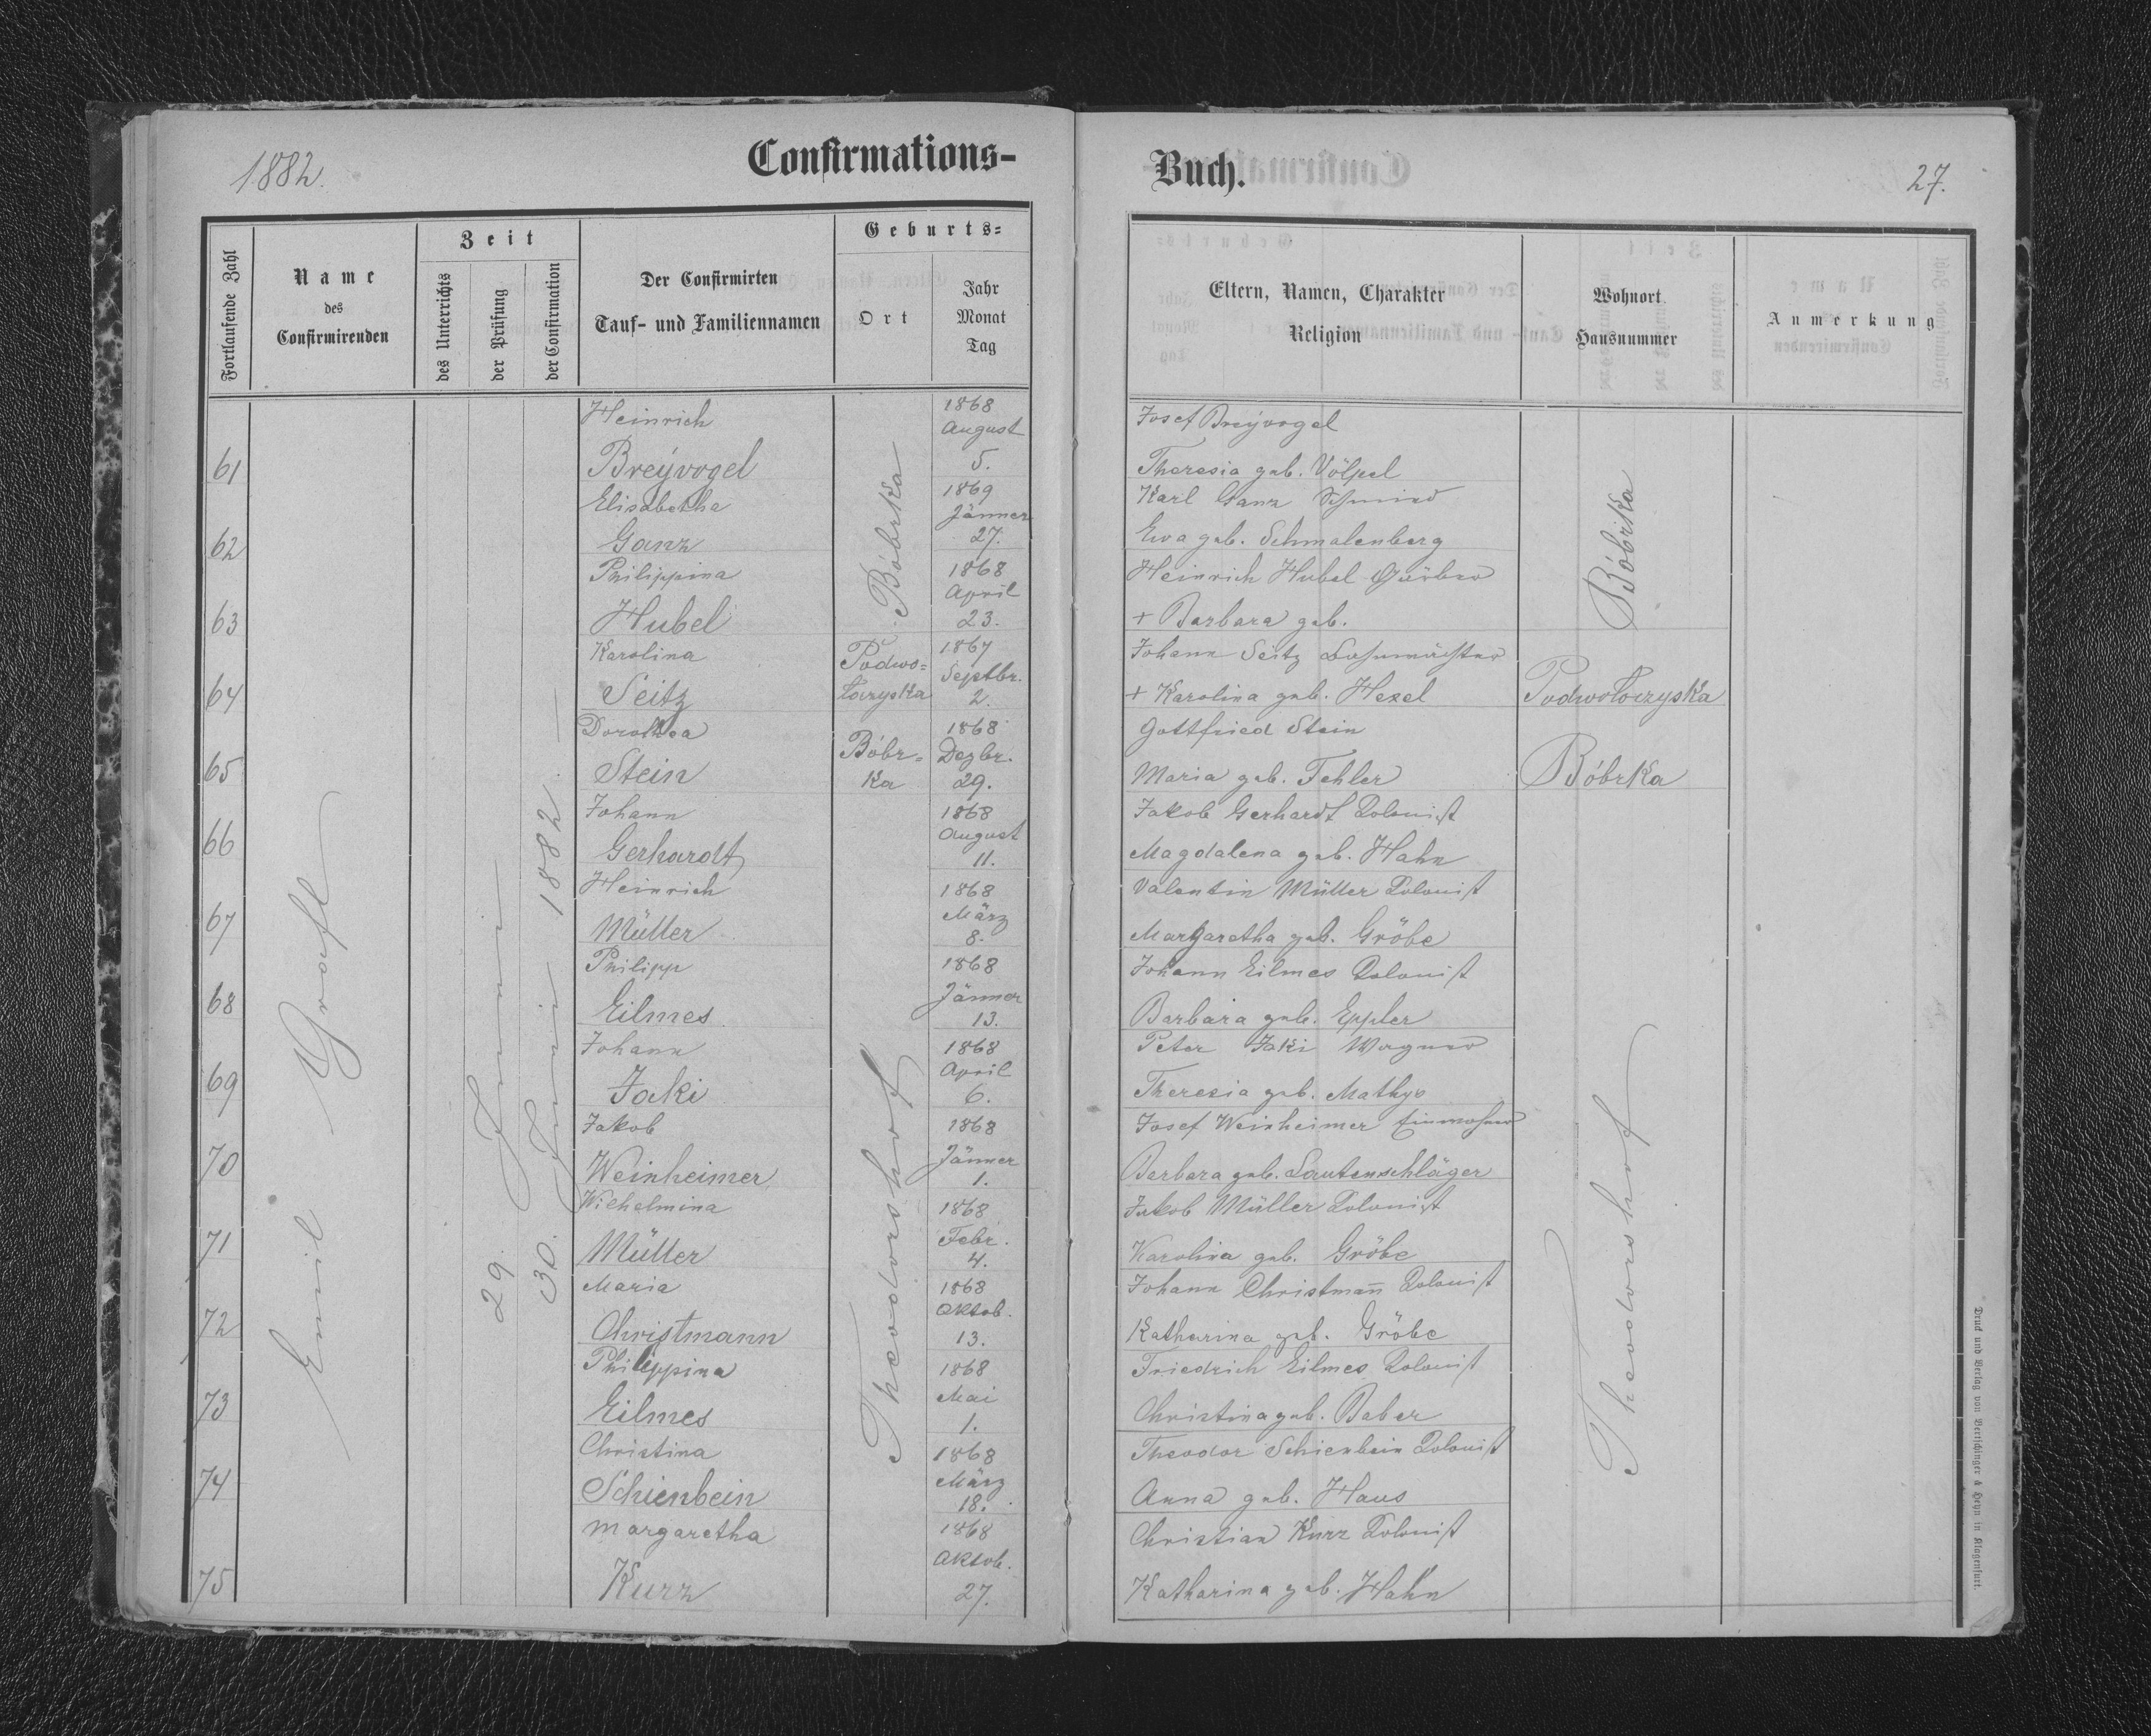 1882.
Confirmations-
Fortlaufende Zahl
Name
des
Confirmirenden
Zeit
des Unterrichts
der Prüfung
der Confirmation
Der Confirmirten
Tauf- und Familiennamen
Geburts-
Ort
Jahr
Monat
Tag
Emil Graft
29. Juni
30. Juni 1882.
Bóbrka
Theodorshof
Heinrich 1868
August
61 Breÿvogel 5.
Elisabetha 1869
Jänner
62 Ganz 27.
Philippina 1868
April
63 Hubel 23.
Karolina Podwo= 1867
Septbr.
64 Seitz łoczyska 2.
Dorothea 1868
Bóbr= Dezbr.
65 Stein ka 29.
Johann 1868
August
66 Gerhardt 11.
Heinrich 1868
März
67 Müller 8.
Philipp 1868
Jänner
68 Eilmes 13.
Johann 1868
April
69 Jaki 6.
Jakob 1868
Jänner
70 Weinheimer 1.
Wilhelmina 1868
Febr.
71 Müller 4.
Maria 1868
Oktob.
72 Christmann 13.
Philippina 1868
Mai
73 Eilmes 1.
Christina 1868
März
74 Schienbein 18.
Margaretha 1868
Oktob.
75 Kurz 27.
Buch.
27.
Eltern, Namen, Charakter
Religion
Wohnort
Hausnummer
Anmerkung
Bóbrka
Theodorshof
Josef Breÿvogel
Theresia geb. Völpel
Karl Ganz Schmied
Eva geb. Schmalenberg
Heinrich Hubel Gärber
+ Barbara geb.
Johann Seitz Bahnwächter
+ Karolina geb. Hexel Podwołoczyska
Gottfried Stein
Maria geb. Fehler Bóbrka
Jakob Gerhardt Kolonist
Magdalena geb. Hahn
Valentin Müller Kolonist
Margaretha geb. Gröbe
Johann Eilmes Kolonist
Barbara geb. Eppler
Peter Jaki Wagner
Theresia geb. Mathys
Josef Weinheimer Einwohner
Barbara geb. Lautenschläger
Jakob Müller Kolonist
Karolina geb. Gröbe
Johann Christmañ Kolonist
Katharina geb. Gröbe
Friedrich Eilmes Kolonist
Christina geb. Baber
Theodor Schienbein Kolonist
Anna geb. Haus
Christian Kurz Kolonist
Katharina geb. Hahn
Druck und Verlag von Bertschinger & Heyn in Klagenfurt.